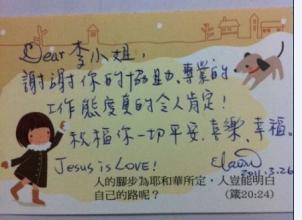 Dear 李小姐，
謝謝你的協助、專業的
工作態度真的令人肯定！
祝福你一切平安、喜樂、幸福。
Jesus is LOVE!
2011.3.26
人的腳步為耶和華所定，人豈能明白
自己的路呢？ （箴20:24）